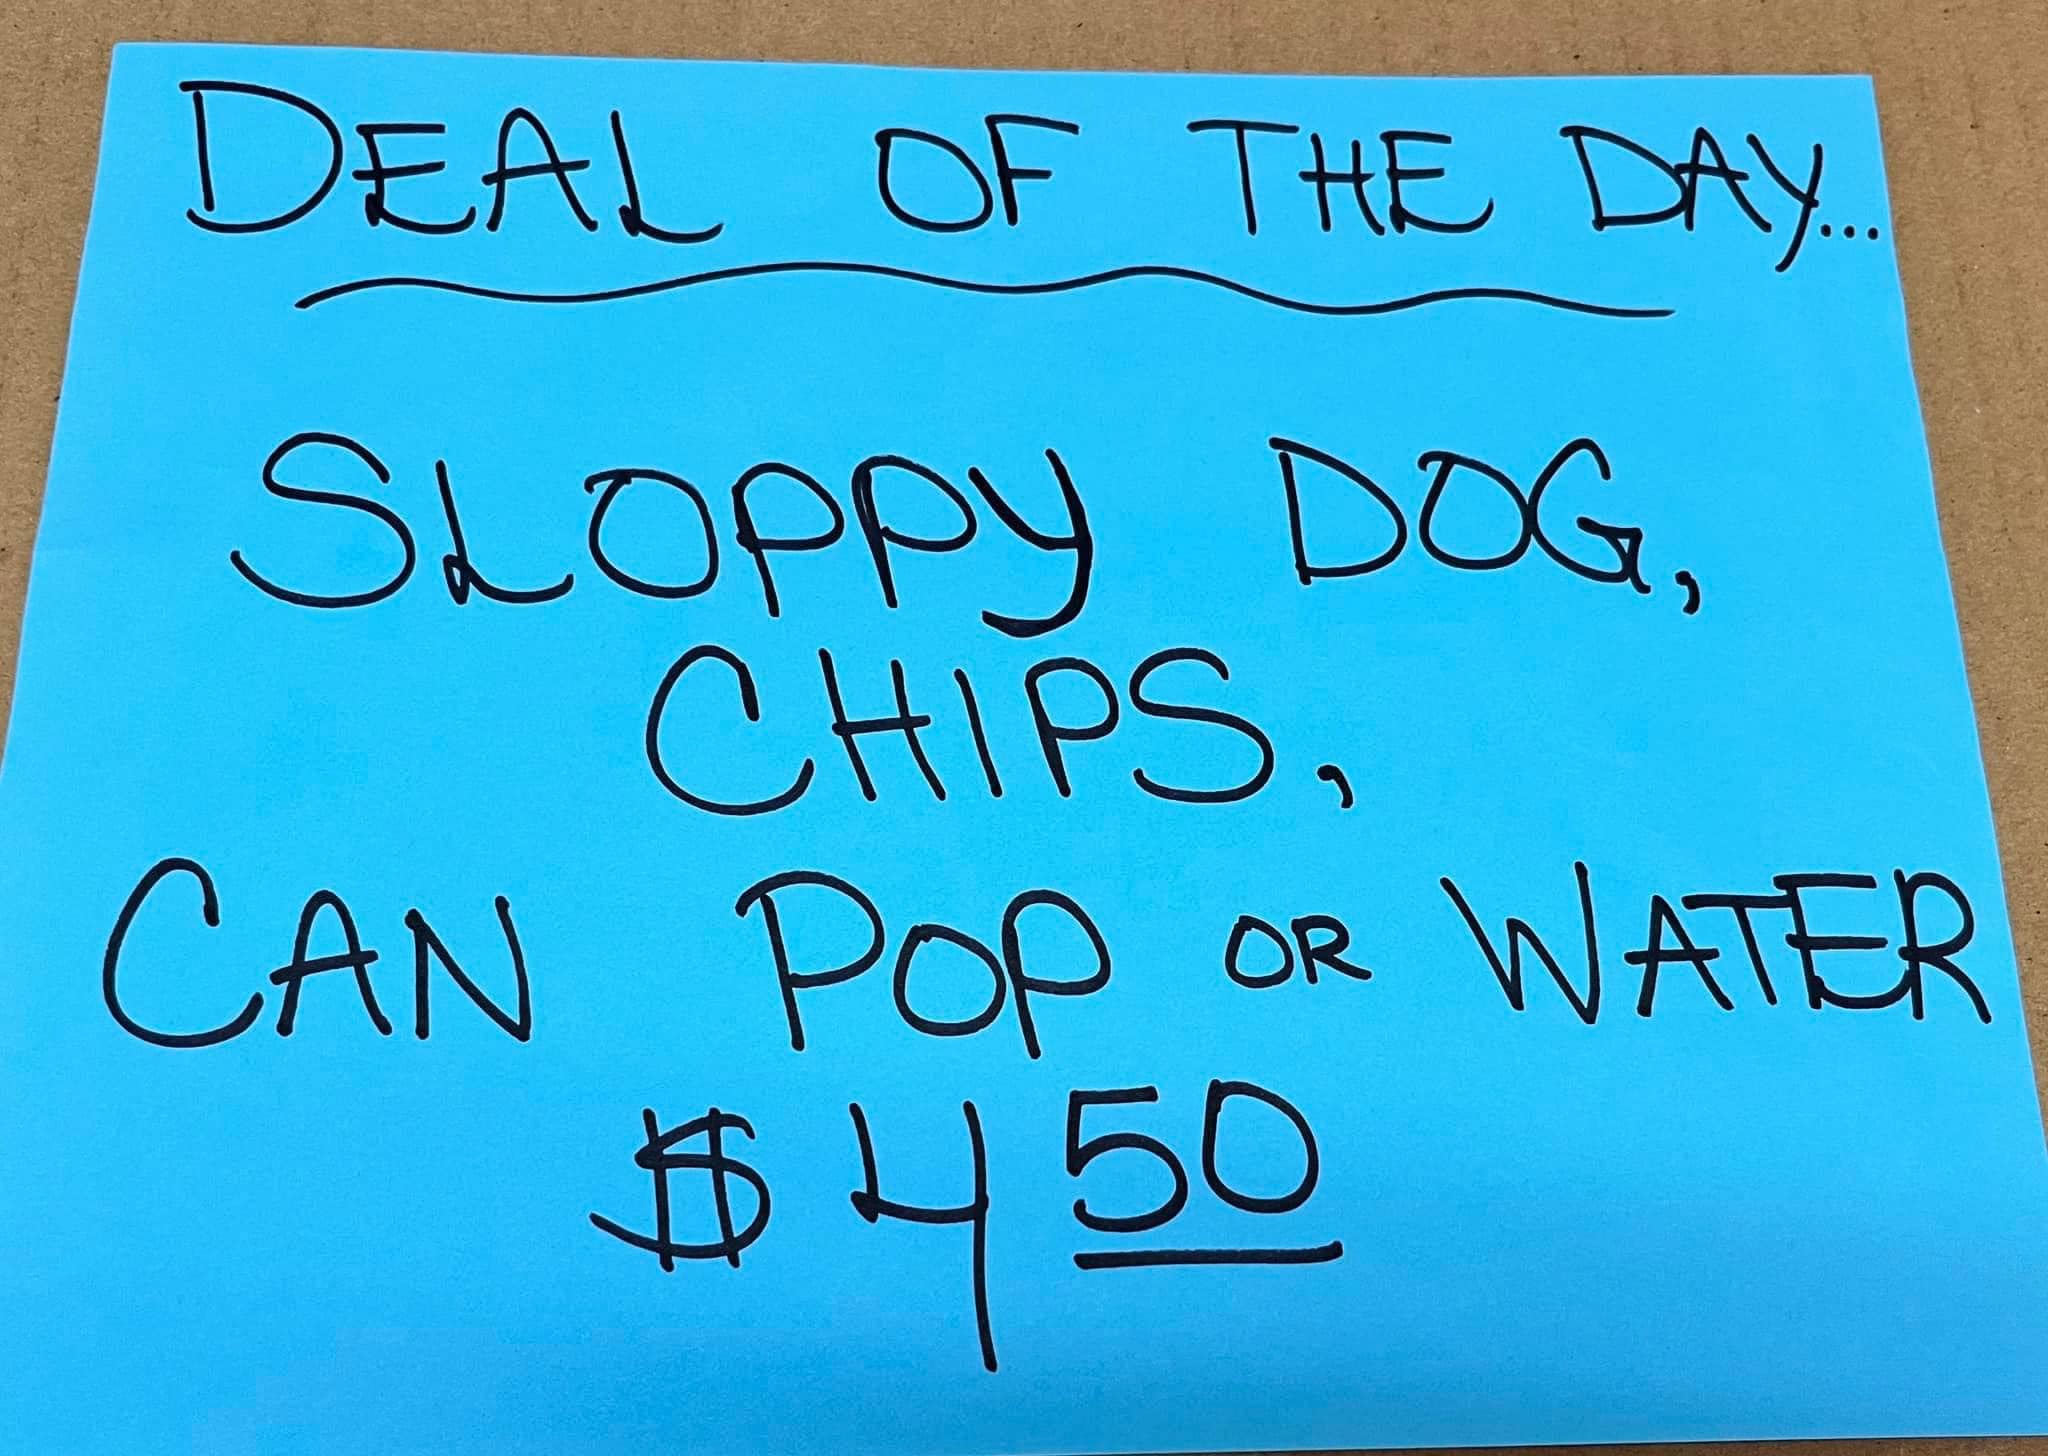 DEAL OF THE DAY...
SLOPPY DOG,
CHIPS,
CAN POP OR WATER
$4 50